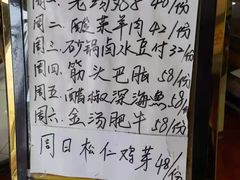 周一 老汤 40/份
周二 酸菜羊肉 42/份
周三 砂锅卤水豆付 32/份
周四 筋头巴脑 58/份
周五 醋椒深海鱼 58/份
周六 金汤肥牛 58/份
周日 松仁鸡芽 48/份